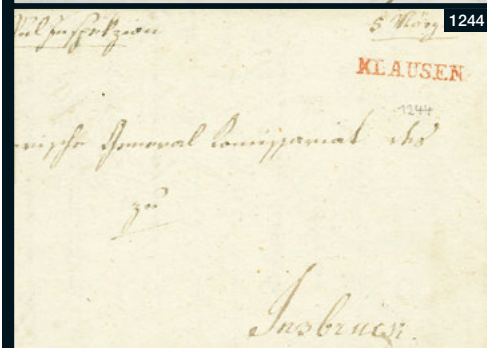 1244
5 März
KLAUSEN
1244
General Comissariat des
zu
Insbruck.